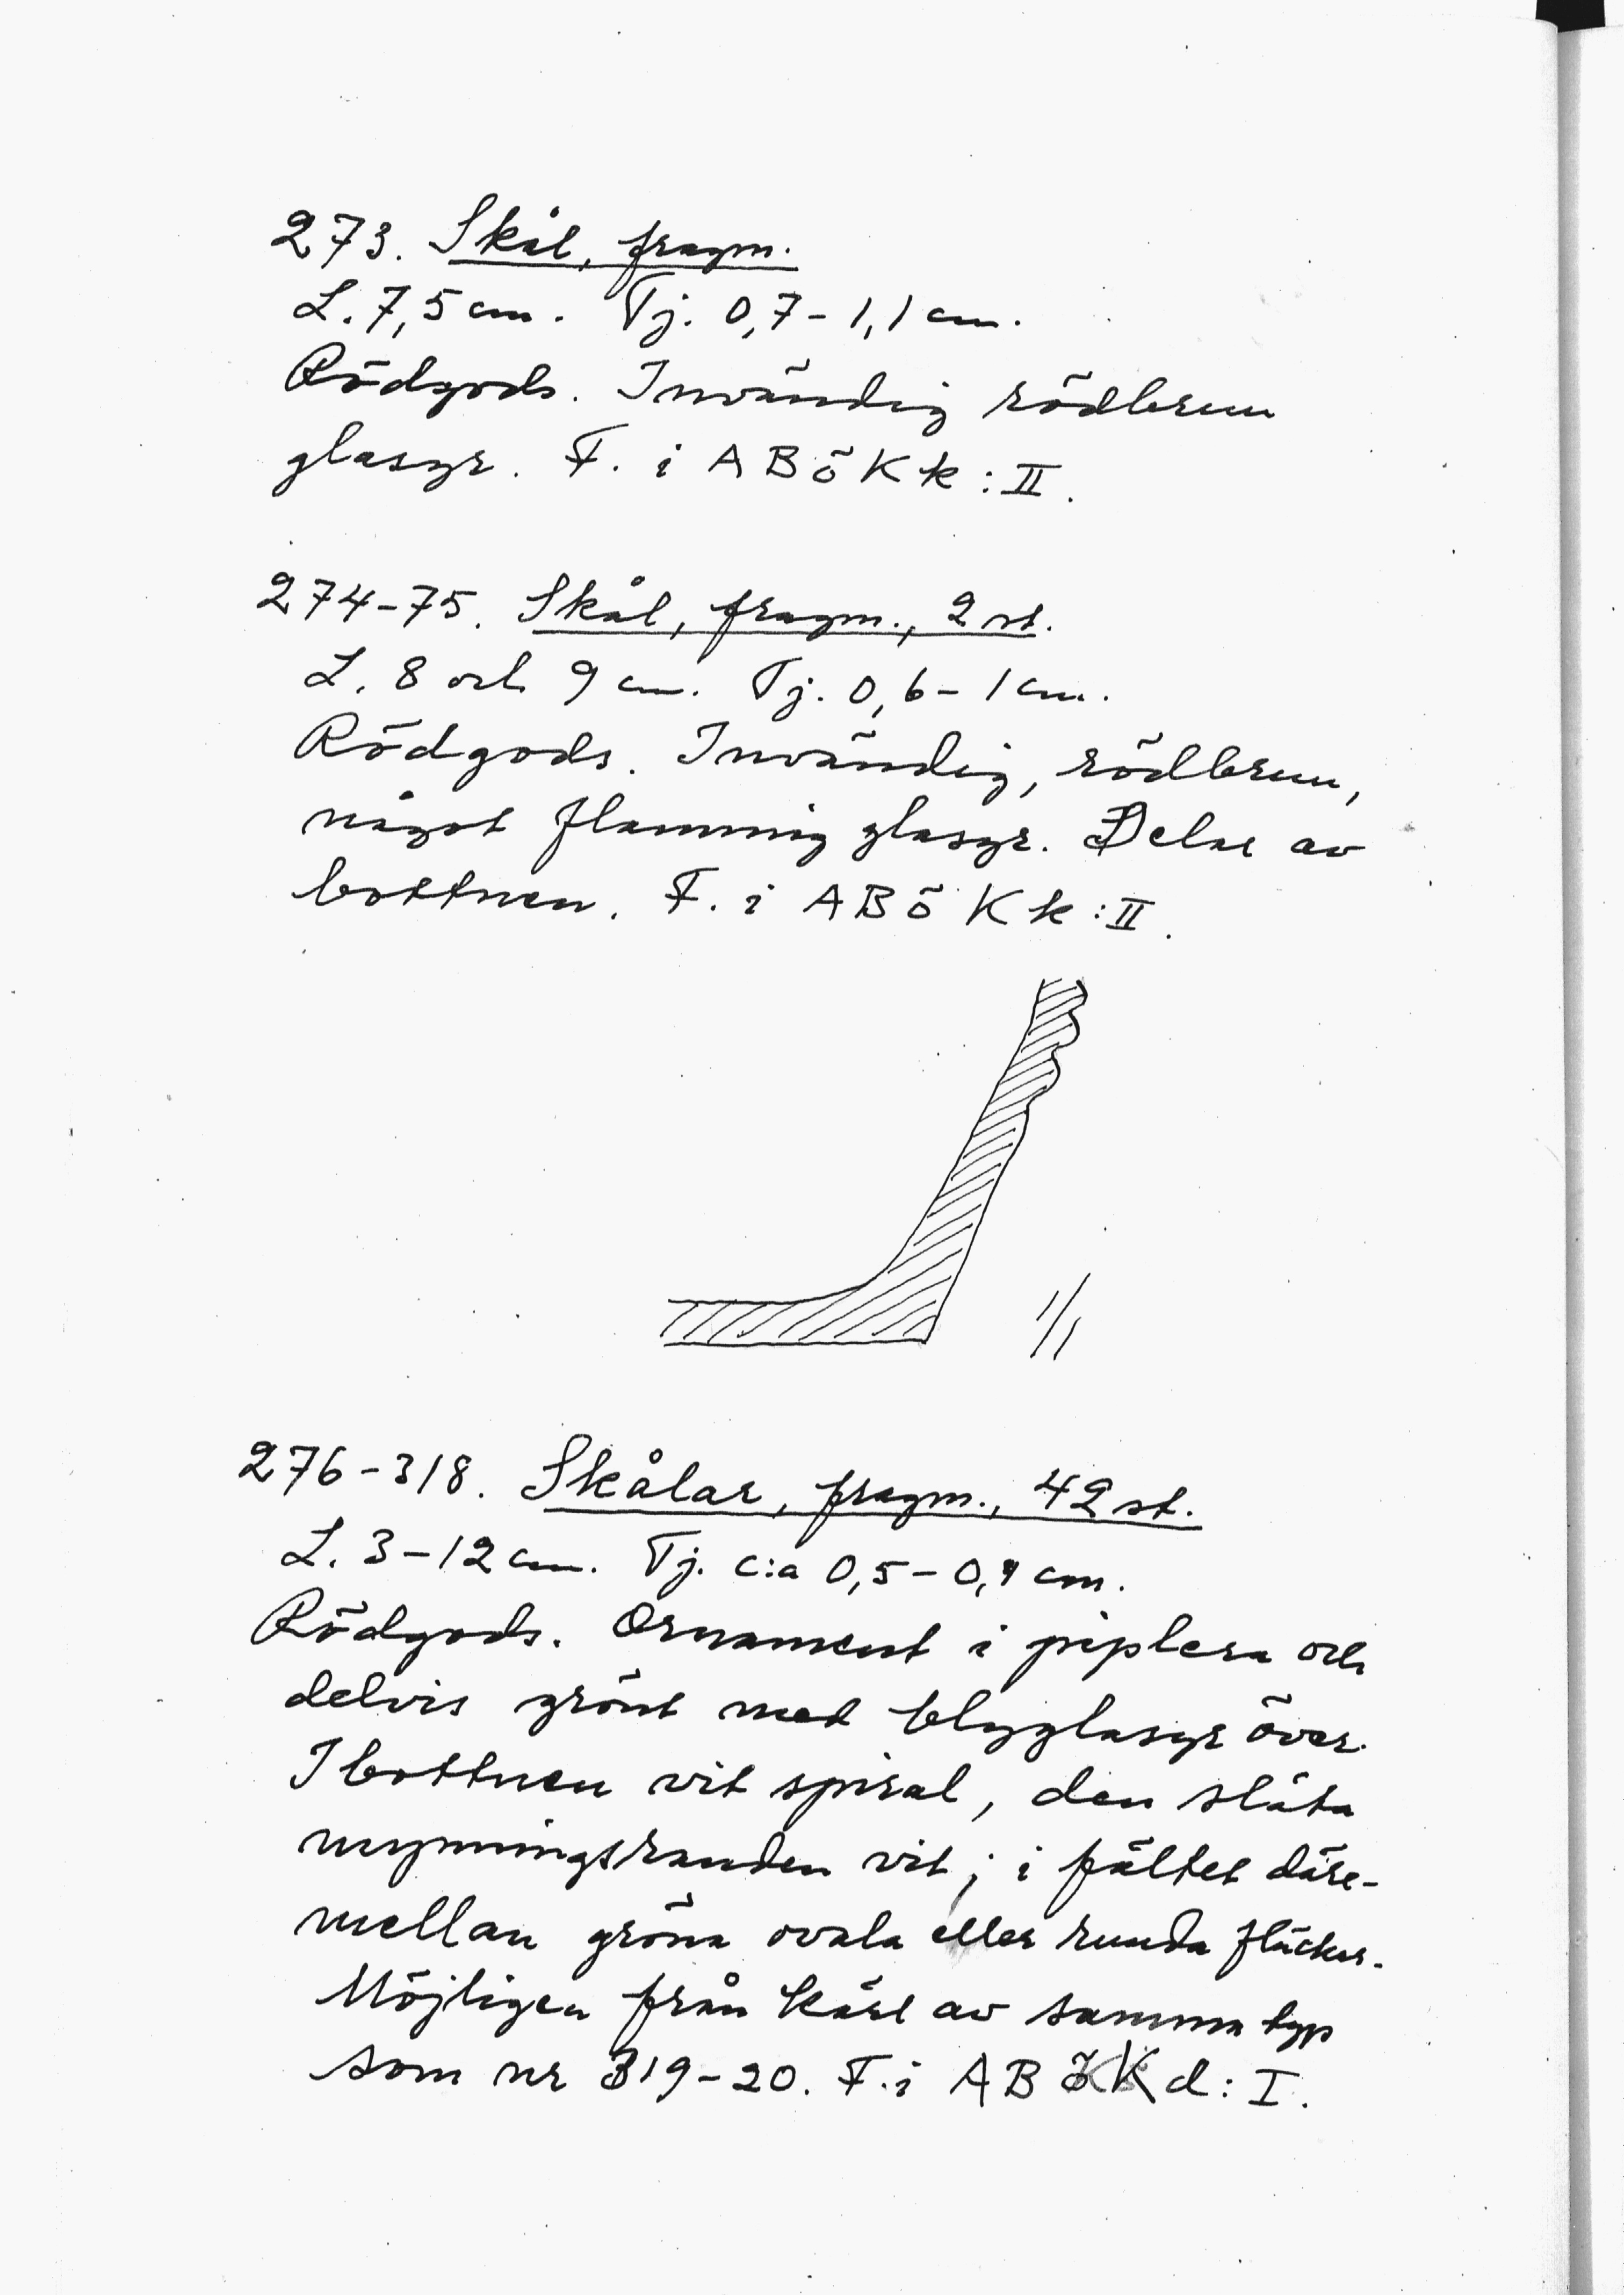 273. Skål, fragm.
L. 7,5 cm. Tj. 0,7-1,1 cm.
Rödgods. Invändig rödbrun
glasyr. F. i ABÖKk:II.
274-75. Skål, fragm., 2 st.
L. 8 och 9 cm. Tj. 0,6-1 cm.
Rödgods. Invändig, rödbrun,
något flammig glasyr. Delar av
bottnen. F. i ABÖKk:II.
1/1
276-318. Skålar, fragm., 42 st.
L. 3-12 cm. Tj. c:a 0,5-0,9 cm.
Rödgods. Ornament i piplera och
delvis grönt med blyglasyr över.
I bottnen vit spiral, den släta
mynningsranden vit; i fältet däre-
mellan gröna ovala eller runda fläckar.
Möjligen från kärl av samma typ
som nr 319-20. F. i ABÖKd:I.